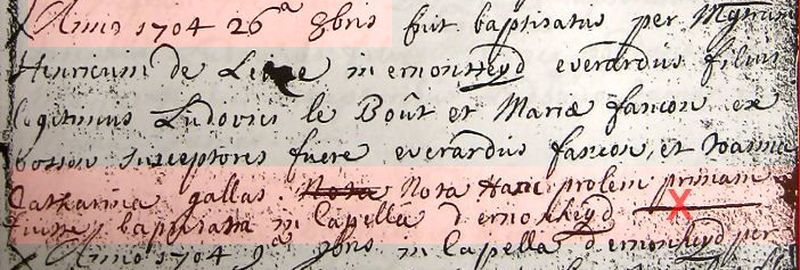 Anno 1704 26a 8bris fuit baptisatus per Mgrum
Henricum de Leixe in ernonheyd everardus filius
legitimus Ludovici le Boût et Mariæ fancon ex
bosson susceptores fuere everardus fancon, et Joanna
Catharina gallas. Nota Nota Hanc prolem primam
fuisse baptisata in Capella d'ernonheyd
Anno 1704 9bris in Capella d'ernonheyd per